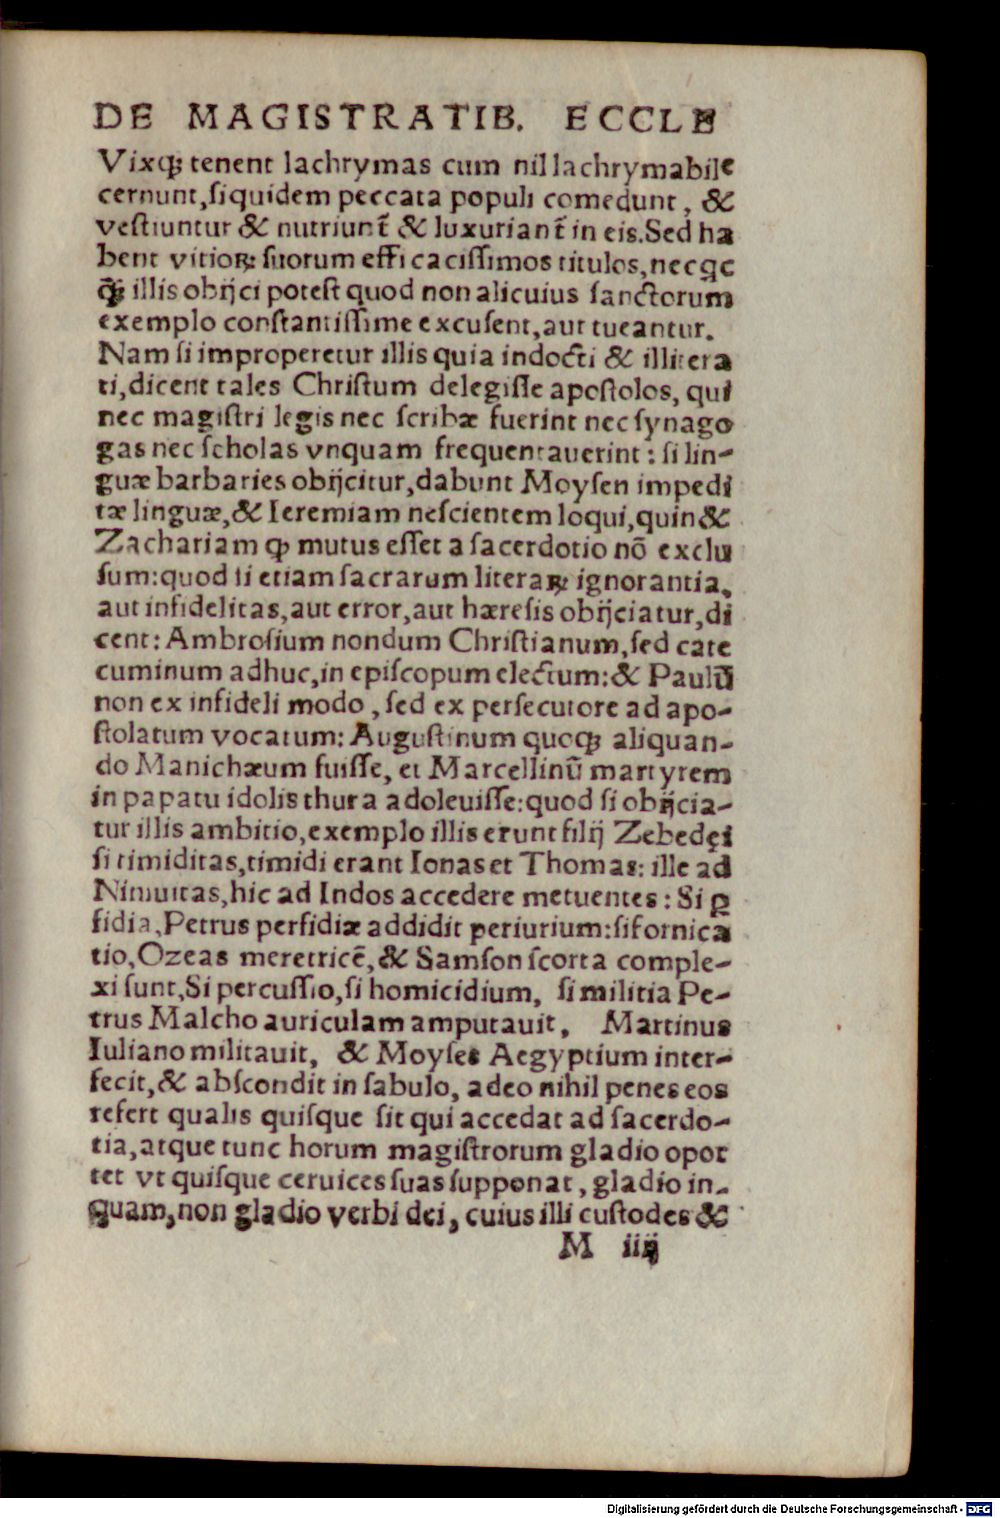 DE MAGISTRATIB. ECCLE
Vixq; tenent lachrymas cum nil lachrymabile
cernunt, siquidem peccata populi comedunt, &
vestiuntur & nutriunt̃ & luxuriant̃ in eis. Sed ha
bent vitioꝝ suorum efficacissimos titulos, nec
illis obijci potest quod non alicuius sanctorum
exemplo constantissime excusent, aut tueantur.
Nam si improperetur illis quia indocti & illitera
ti, dicent tales Christum delegisse apostolos, qui
nec magistri legis nec scribæ fuerint nec synago
gas nec scholas vnquam frequentauerint: si lin-
guæ barbaries obijcitur, dabunt Moysen impedi
tæ linguæ, & Ieremiam nescientem loqui, quin &
Zachariam ꝙ mutus esset a sacerdotio nõ exclu
sum: quod si etiam sacrarum literaꝝ ignorantia,
aut infidelitas, aut error, aut hæresis obijciatur, di
cent: Ambrosium nondum Christianum, sed cate
cuminum adhuc, in episcopum electum: & Paulũ
non ex infideli modo, sed ex persecutore ad apo-
stolatum vocatum: Augustinum quoq; aliquan-
do Manichæum fuisse, et Marcellinũ martyrem
in papatu idolis thura adoleuisse: quod si obijcia-
tur illis ambitio, exemplo illis erunt filij Zebedęi
si timiditas, timidi erant Ionas et Thomas: ille ad
Niniuitas, hic ad Indos accedere metuentes: Si ꝑ
fidia, Petrus perfidiæ addidit periurium: si fornica
tio, Ozeas meretricẽ, & Samson scorta comple-
xi sunt, Si percussio, si homicidium, si militia Pe-
trus Malcho auriculam amputauit, Martinus
Iuliano militauit, & Moyses Aegyptium inter-
fecit, & abscondit in sabulo, adeo nihil penes eos
refert qualis quisque sit qui accedat ad sacerdo-
tia, atque tunc horum magistrorum gladio opor
tet vt quisque ceruices suas supponat, gladio in-
quam, non gladio verbi dei, cuius illi custodes &
M iiij
Digitalisierung gefördert durch die Deutsche Forschungsgemeinschaft - DFG